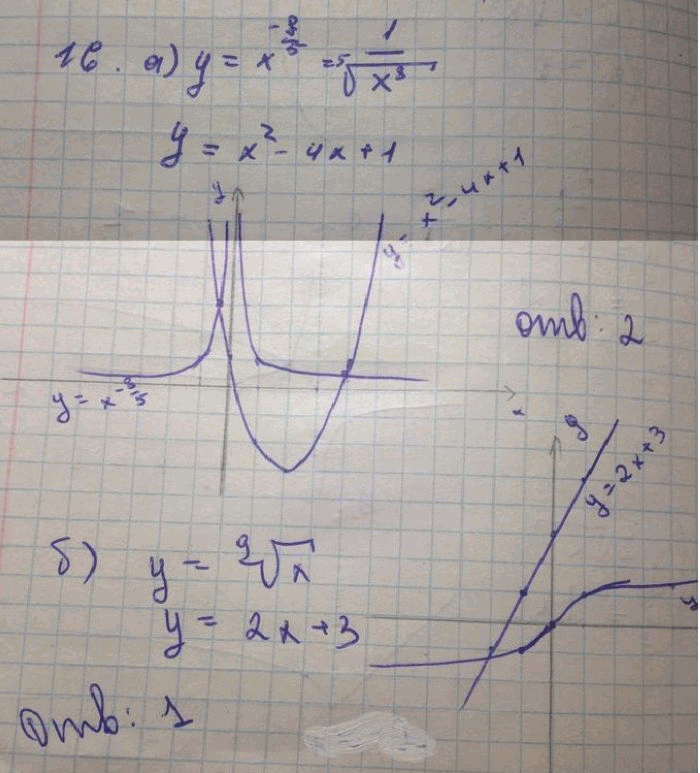 16. а) y = x^{-3/5} = ⁵√(1/x³)
y = x² - 4x + 1
y
y = x² - 4x + 1
отв: 2
y = x^{-3/5}
x
y
y = 2x+3
б) y = ⁹√x
y = 2x + 3
y
Отв: 1